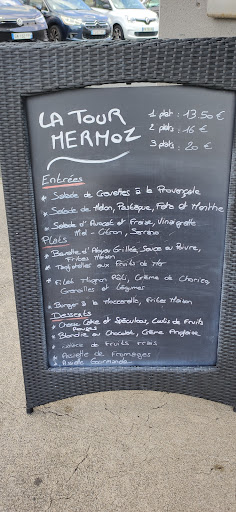 LA TOUR
MERMOZ
1 plat : 13.50€
2 plats : 16 €
3 plats : 20 €
Entrées
* Salade de Crevettes à la Provençale
* Salade de Melon, Pastèque, Feta et Menthe
* Salade d'Avocat et Fraise, Vinaigrette
Miel - Citron, Serrano
Plats
* Bavette d'Aloyau Grillée, Sauce au Poivre,
Frites Maison
* Tagliatelles aux Fruits de Mer
* Filet Mignon Rôti, Crème de Chorizo,
Grenailles et Légumes
* Burger à la Mozzarella, Frites Maison
Desserts
* Cheese Cake et Spéculoos, Coulis de Fruits
Rouges
* Blondie au Chocolat, Crème Anglaise
* Salade de Fruits Frais
* Assiette de Fromages
* Assiette Gourmande